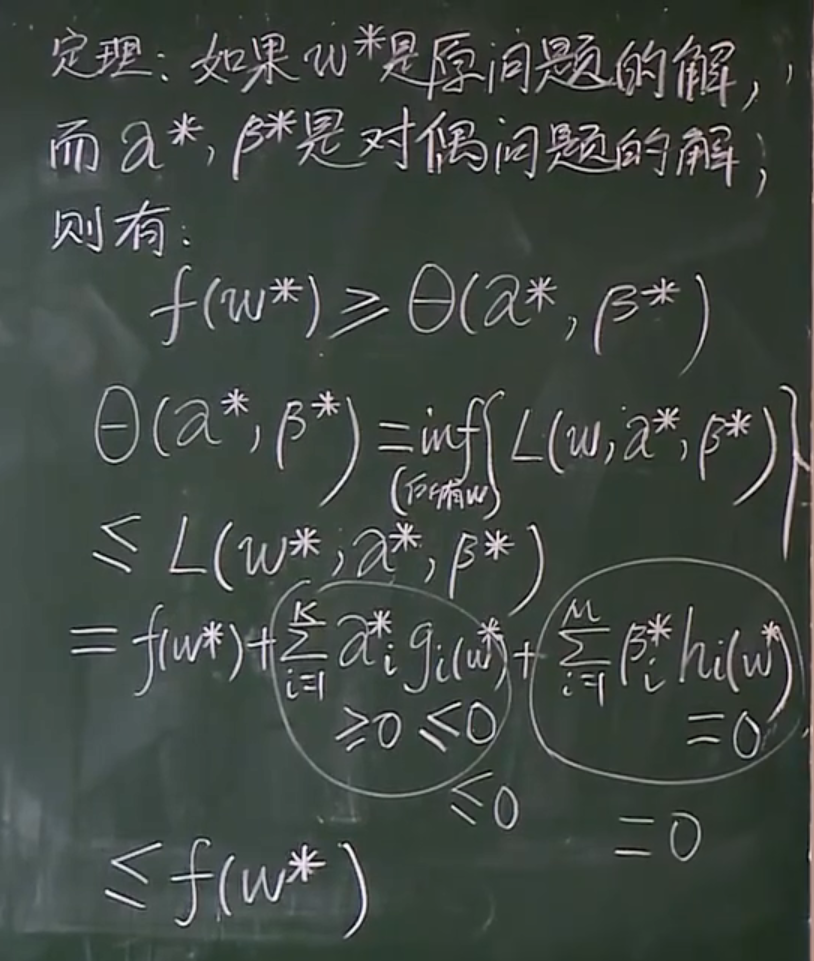 定理：如果w*是原问题的解，
而α*，β*是对偶问题的解，
则有：
f(w*) ≥ θ(α*, β*)
θ(α*, β*) = inf{L(w, α*, β*)}
(所有w)
≤ L(w*, α*, β*)
= f(w*) + ∑_{i=1}^{K} α*_i g_i(w*) + ∑_{i=1}^{M} β*_i h_i(w*)
≥0 ≤0 =0
≤0 =0
≤ f(w*)